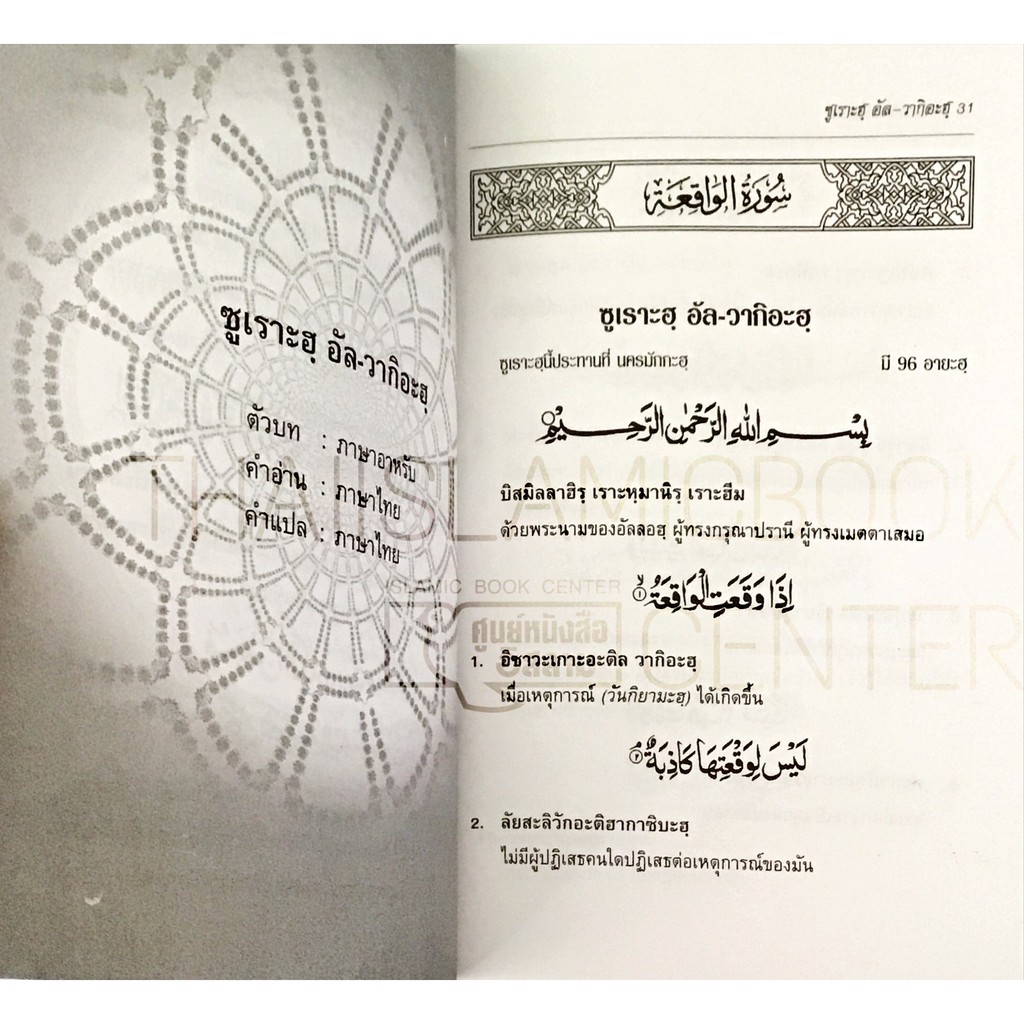 ซูเราะฮฺ อัล-วากิอะฮฺ
ตัวบท : ภาษาอาหรับ
คำอ่าน : ภาษาไทย
คำแปล : ภาษาไทย
ซูเราะฮฺ อัล-วากิอะฮฺ 31
سُورَةُ الْوَاقِعَةِ
ซูเราะฮฺ อัล-วากิอะฮฺ
ซูเราะฮฺนี้ประทานที่ นครมักกะฮฺ มี 96 อายะฮฺ
بِسْمِ اللهِ الرَّحْمٰنِ الرَّحِيْمِ
บิสมิลลาฮิรฺ เราะหฺมานิรฺ เราะฮีม
ด้วยพระนามของอัลลอฮฺ ผู้ทรงกรุณาปรานี ผู้ทรงเมตตาเสมอ
THAI ISLAMIC BOOK
ISLAMIC BOOK CENTER
اِذَا وَقَعَتِ الْوَاقِعَةُ ۙ ١
ศูนย์หนังสือ
อิสลาม
CENTER
1. อิซาวะเกาะอะติล วากิอะฮฺ
เมื่อเหตุการณ์ (วันกิยามะฮฺ) ได้เกิดขึ้น
لَيْسَ لِوَقْعَتِهَا كَاذِبَةٌ ۘ ٢
2. ลัยสะลิวักอะติฮากาซิบะฮฺ
ไม่มีผู้ปฏิเสธคนใดปฏิเสธต่อเหตุการณ์ของมัน